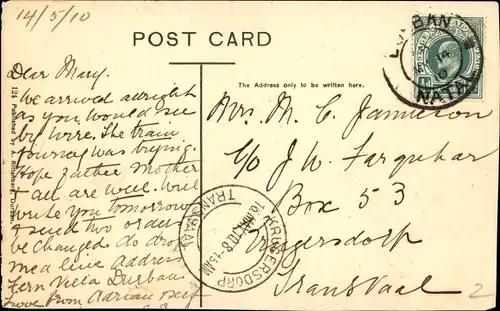 14/5/10
POST CARD
The Address only to be written here.
121 Published by A. Rittenberg, Durban.
Dear Mary.
We arrived alright
as you would see
by wire. The train
journey was trying.
Hope Father Mother
& all are well. Will
write you tomorrow
& send two orders
be changed do drop
me a line address
Fern Villa Durban.
love from Adrian self
Mrs. M. C. Jamieson
C/o J. W. Farquhar
Box 53
Krugersdorp
Transvaal
DURBAN
MY 14
10
NATAL
KRUGERSDORP
16 MAY 10 8-15AM
TRANSVAAL
2